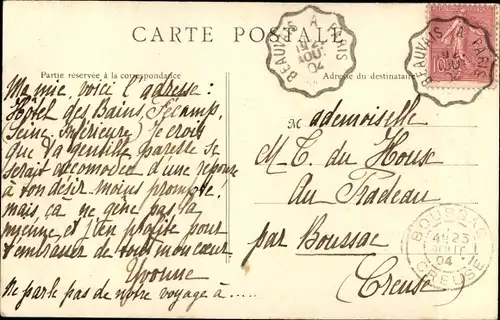 CARTE POSTALE
Partie réservée à la correspondance
Adresse du destinataire
BEAUVAIS A PARIS
23
AOUT
04
BEAUVAIS A PARIS
10
Ma mie, voici l'adresse :
Hôtel des Bains, Fécamp,
Seine Inférieure) Je crois
que ta gentille paresse se
serait accomodée d'une réponse
à ton désir moins prompte,
mais, ça ne gêne pas la
mienne et j'en profite pour
t'embrasser de tout mon cœur.
Yvonne
Ne parle pas de notre voyage à .....
Mademoiselle
M. T. du Houx
Au Pradeau
par Boussac
Creuse
BOUSSAC
23
AOUT
04
CREUSE